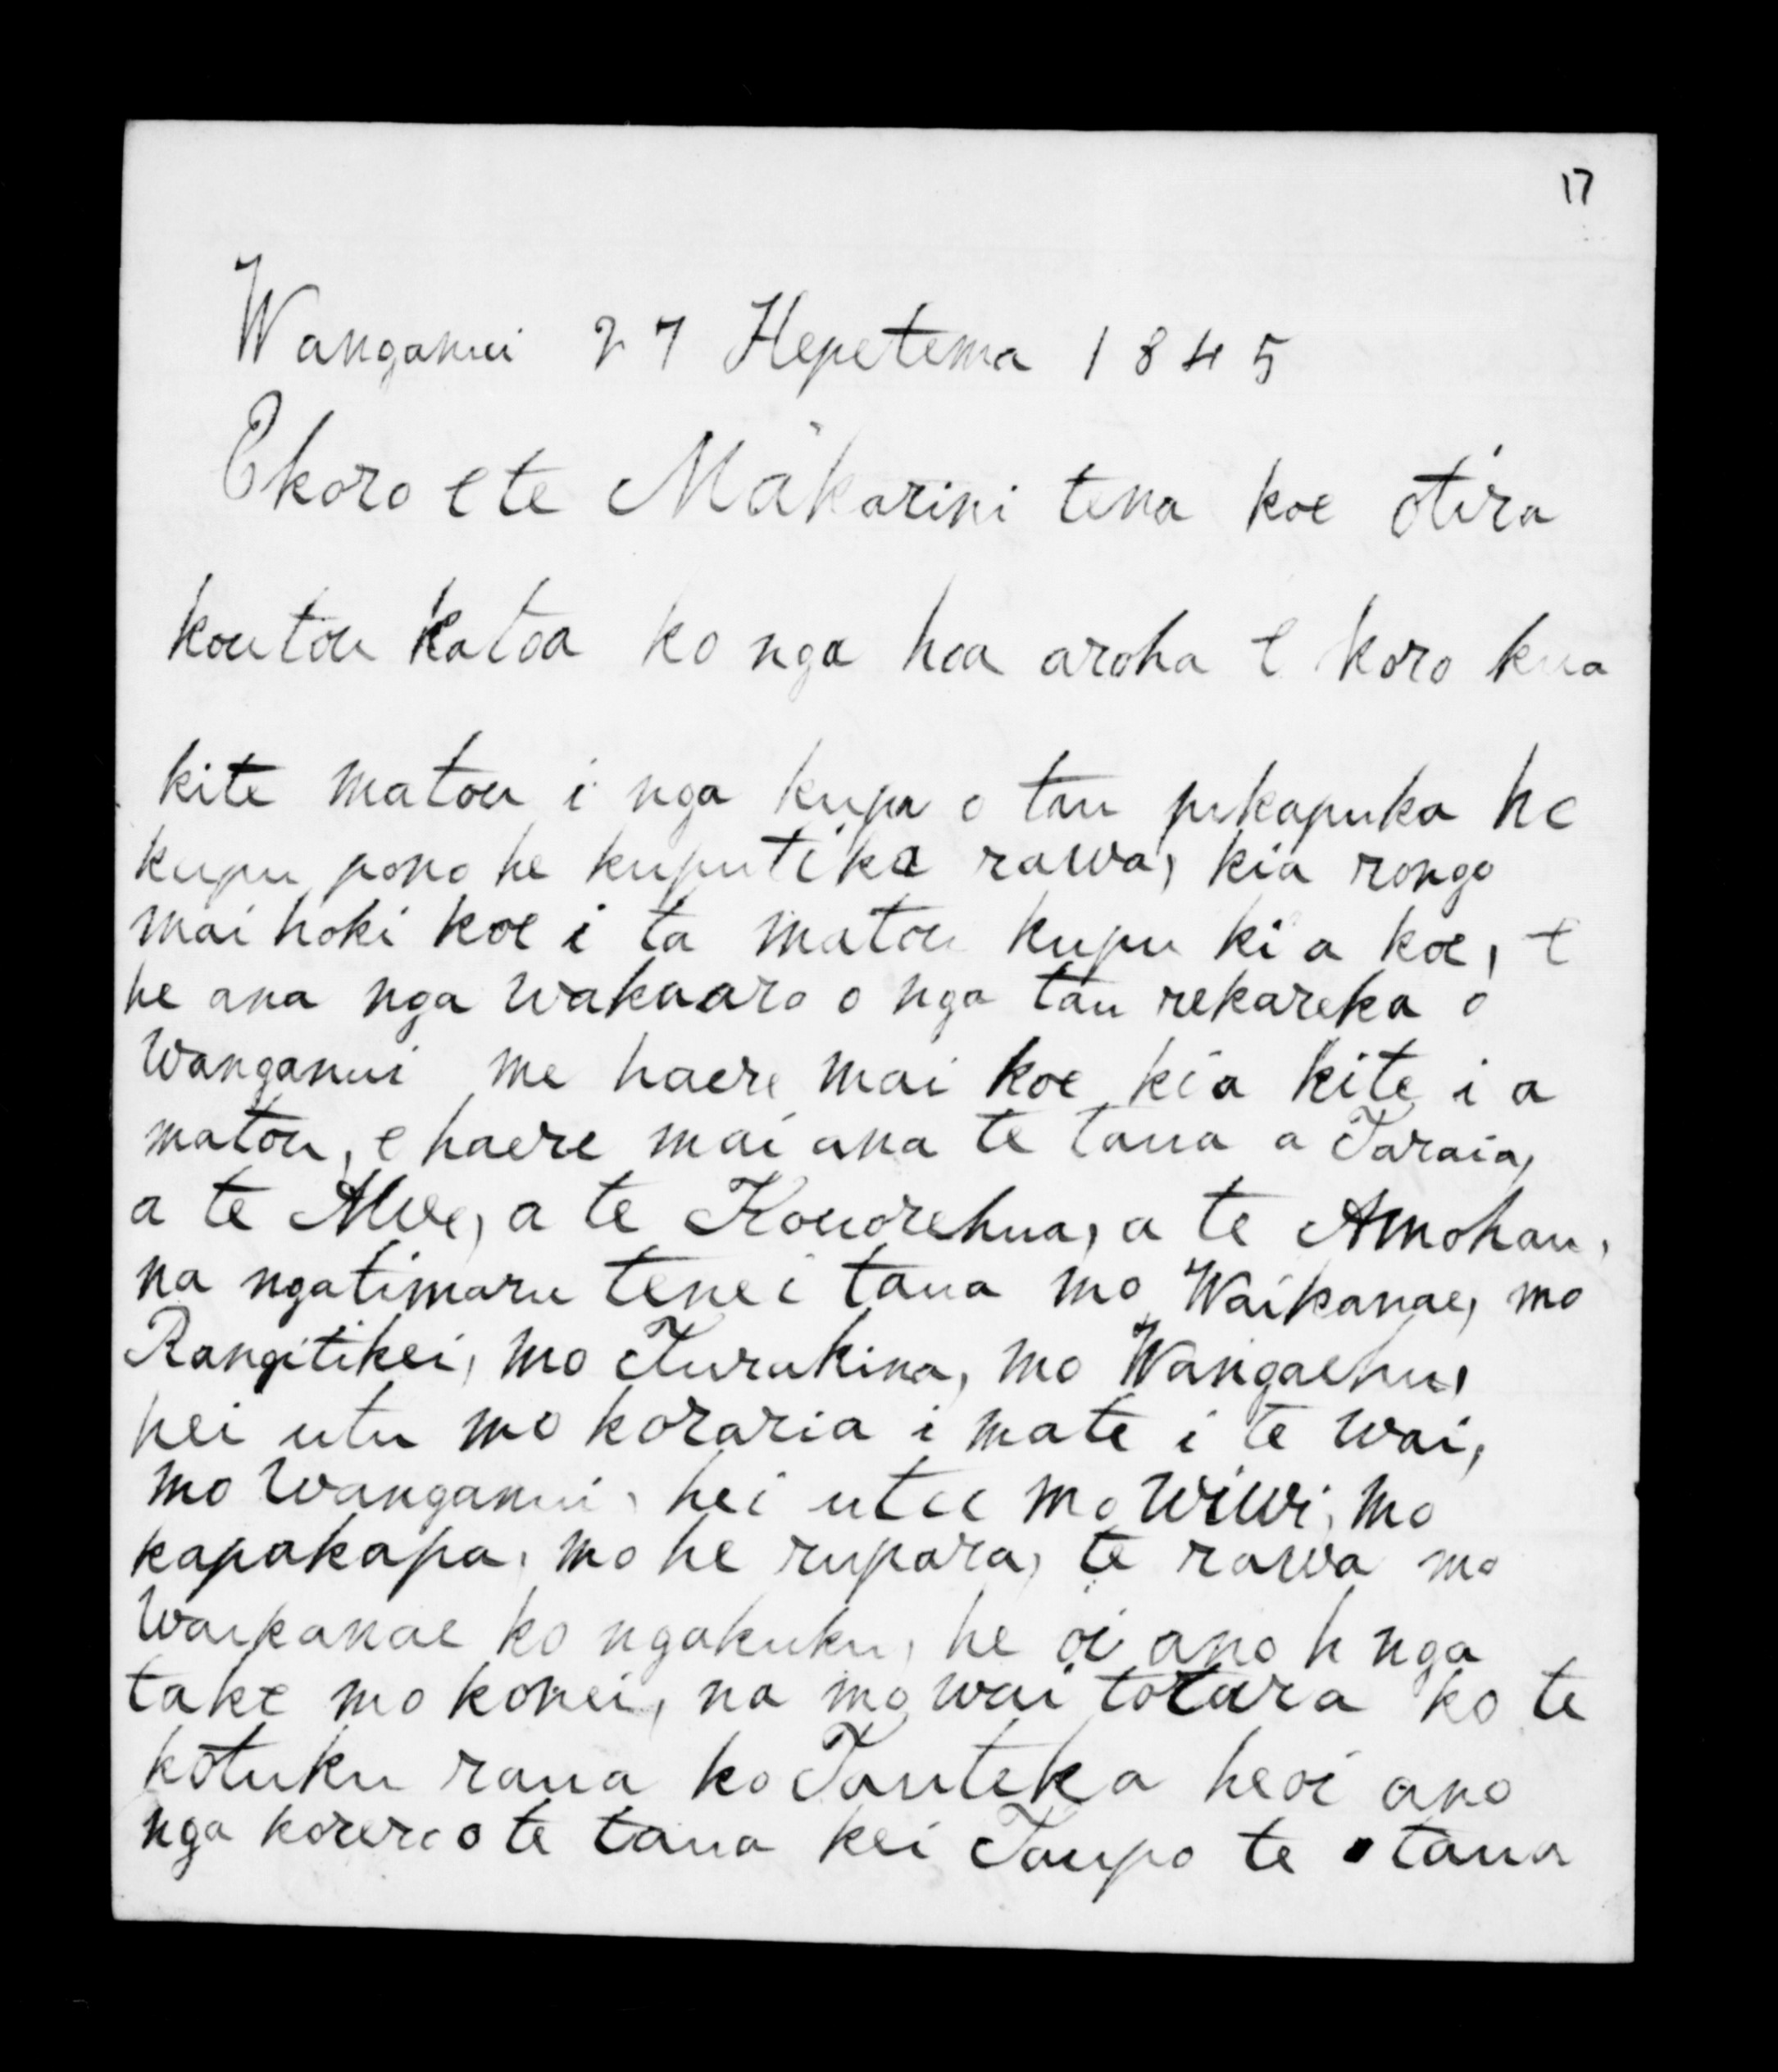 17
Wanganui 27 Hepetema 1845
E koro e te Makarini tena koe otira
koutou katoa ko nga hoa aroha e koro kua
kite matou i nga kupu o tau pukapuka he
kupu pono he kupu tika rawa, kia rongo
mai hoki koe i ta matou kupu ki a koe, e
he ana nga wakaaro o nga tau rekareka o
Wanganui me haere mai koe kia kite i a
matou, e haere mai ana te taua a Taraia,
a te Awe, a te Kouorehua, a te Amohau,
na ngatimaru tenei taua mo Waikanae, mo
Rangitikei, mo Turakina, mo Wangaehu,
hei utu mo koraria i mate i te wai,
mo Wanganui, hei utu mo wiwi, mo
kapakapa, mo he rupara, te rawa mo
Waikanae ko ngakuku, he oi ano h nga
take mo konei, na mo wai totara ko te
kotuku raua ko Tauteka heoi ano
nga korero o te taua kei Taupo te taua